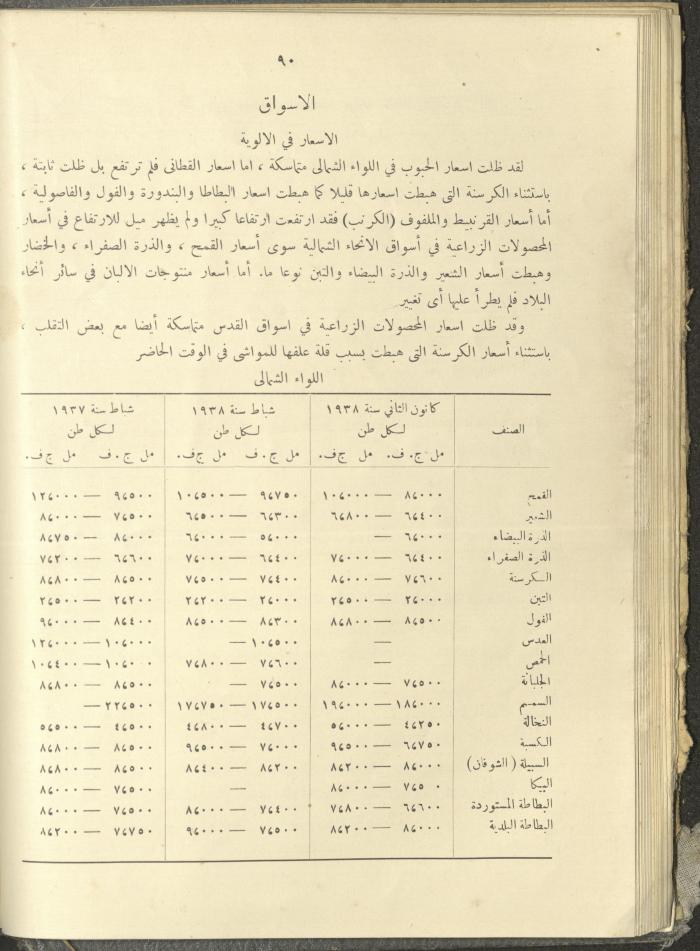 ٩٠
الاسواق
الاسعار في الالوية
لقد ظلت اسعار الحبوب في اللواء الشمالى متماسكة ، اما اسعار القطانى فلم ترتفع بل ظلت ثابتة ،
باستثناء الكرسنة التى هبطت اسعارها قليلا كما هبطت اسعار البطاطا والبندورة والفول والفاصولية ،
أما أسعار القرنبيط والملفوف (الكرنب) فقد ارتفعت ارتفاعا كبيرا ولم يظهر ميل للارتفاع في أسعار
المحصولات الزراعية في أسواق الانحاء الشمالية سوى أسعار القمح ، والذرة الصفراء ، والخضار
وهبطت أسعار الشعير والذرة البيضاء والتبن نوعا ما. أما أسعار منتوجات الالبان في سائر أنحاء
البلاد فلم يطرأ عليها أى تغيير
وقد ظلت اسعار المحصولات الزراعية في اسواق القدس متماسكة أيضا مع بعض التقلب ،
باستثناء أسعار الكرسنة التى هبطت بسبب قلة علفها للمواشى في الوقت الحاضر
اللواء الشمالى
الصنف كانون الثاني سنة ١٩٣٨ شباط سنة ١٩٣٨ شباط سنة ١٩٣٧
لكل طن لكل طن لكل طن
مل ج. ف. مل ج ف. مل ج. ف مل ج ف. مل ج. ف مل ج ف.
القمح ٨٤٠٠٠ — ١٠٤٠٠٠ ٩٤٧٥٠ — ١٠٤٥٠٠ ٩٤٥٠٠ — ١٢٤٠٠٠
الشعير ٦٤٤٠٠ — ٦٤٨٠٠ ٦٤٣٠٠ — ٦٤٥٠٠ ٧٤٥٠٠ — ٨٤٠٠٠
الذرة البيضاء ٦٤٠٠٠ — ٥٤٠٠٠ — ٦٤٠٠٠ ٨٤٠٠٠ — ٨٤٧٥٠
الذرة الصفراء ٦٤٤٠٠ — ٧٤٠٠٠ ٦٤٤٠٠ — ٧٤٠٠٠ ٦٤٦٠٠ — ٧٤٢٠٠
الكرسنة ٧٤٦٠٠ — ٨٤٠٠٠ ٧٤٤٠٠ — ٧٤٥٠٠ ٨٤٥٠٠ — ٨٤٨٠٠
التبن ٢٤٠٠٠ — ٢٤٥٠٠ ٢٤٠٠٠ — ٢٤٢٠٠ ٢٤٢٠٠ — ٢٤٥٠٠
الفول ٨٤٥٠٠ — ٨٤٨٠٠ ٨٤٣٠٠ — ٨٤٥٠٠ ٨٤٤٠٠ — ٩٤٠٠٠
العدس — ١٠٤٥٠٠ — ١٠٤٠٠٠ — ١٢٤٠٠٠
الحمص — ٧٤٦٠٠ — ٧٤٨٠٠ ١٠٤٠٠٠ — ١٠٤٤٠٠
الجلبانة ٧٤٥٠٠ — ٨٤٠٠٠ ٧٤٥٠٠ — ٨٤٥٠٠ — ٨٤٨٠٠
السمسم ١٨٤٠٠٠ — ١٩٤٠٠٠ ١٧٤٥٠٠ — ١٧٤٧٥٠ ٢٢٤٥٠٠ —
النخالة ٤٤٢٥٠ — ٥٤٠٠٠ ٤٤٧٠٠ — ٤٤٨٠٠ ٤٤٥٠٠ — ٥٤٥٠٠
الكسبة ٦٤٧٥٠ — ٩٤٥٠٠ ٧٤٠٠٠ — ٩٤٥٠٠ ٨٤٥٠٠ — ٨٤٨٠٠
السبيلة (الشوفان) ٨٤٠٠٠ — ٨٤٢٠٠ ٨٤٢٠٠ — ٨٤٤٠٠ ٨٤٥٠٠ — ٨٤٨٠٠
البيكا ٧٤٥٠٠ — ٨٤٠٠٠ — ٧٤٥٠٠ — ٨٤٠٠٠
البطاطة المستوردة ٦٤٦٠٠ — ٧٤٨٠٠ ٧٤٤٠٠ — ٨٤٠٠٠ ٧٤٥٠٠ — ٨٤٠٠٠
البطاطة البلدية ٨٤٠٠٠ — ٨٤٢٠٠ ٧٤٥٠٠ — ٩٤٠٠٠ ٧٤٧٥٠ — ٨٤٢٠٠